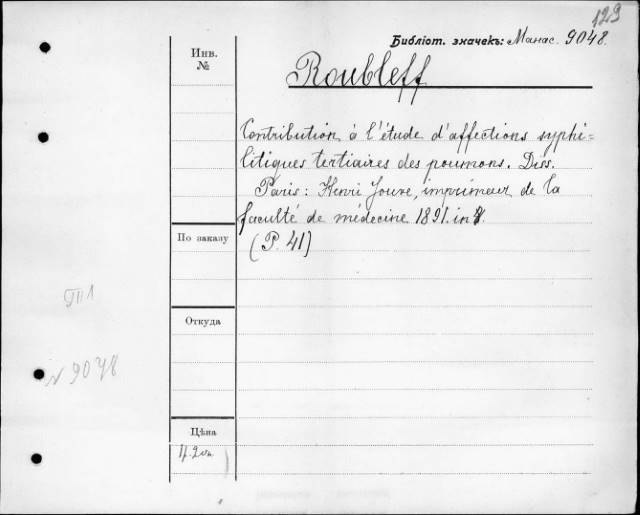 129
Библіот. значекъ: Манас. 9048.
Инв.
№
Roubleff
Contribution à l'étude d'affections syphi=
litiques tertiaires des poumons. Diss.
Paris: Henri Jouve, imprimeur de la
faculté de médecine 1891. in 8.
(P. 41)
По заказу
Откуда
N 9048
Цѣна